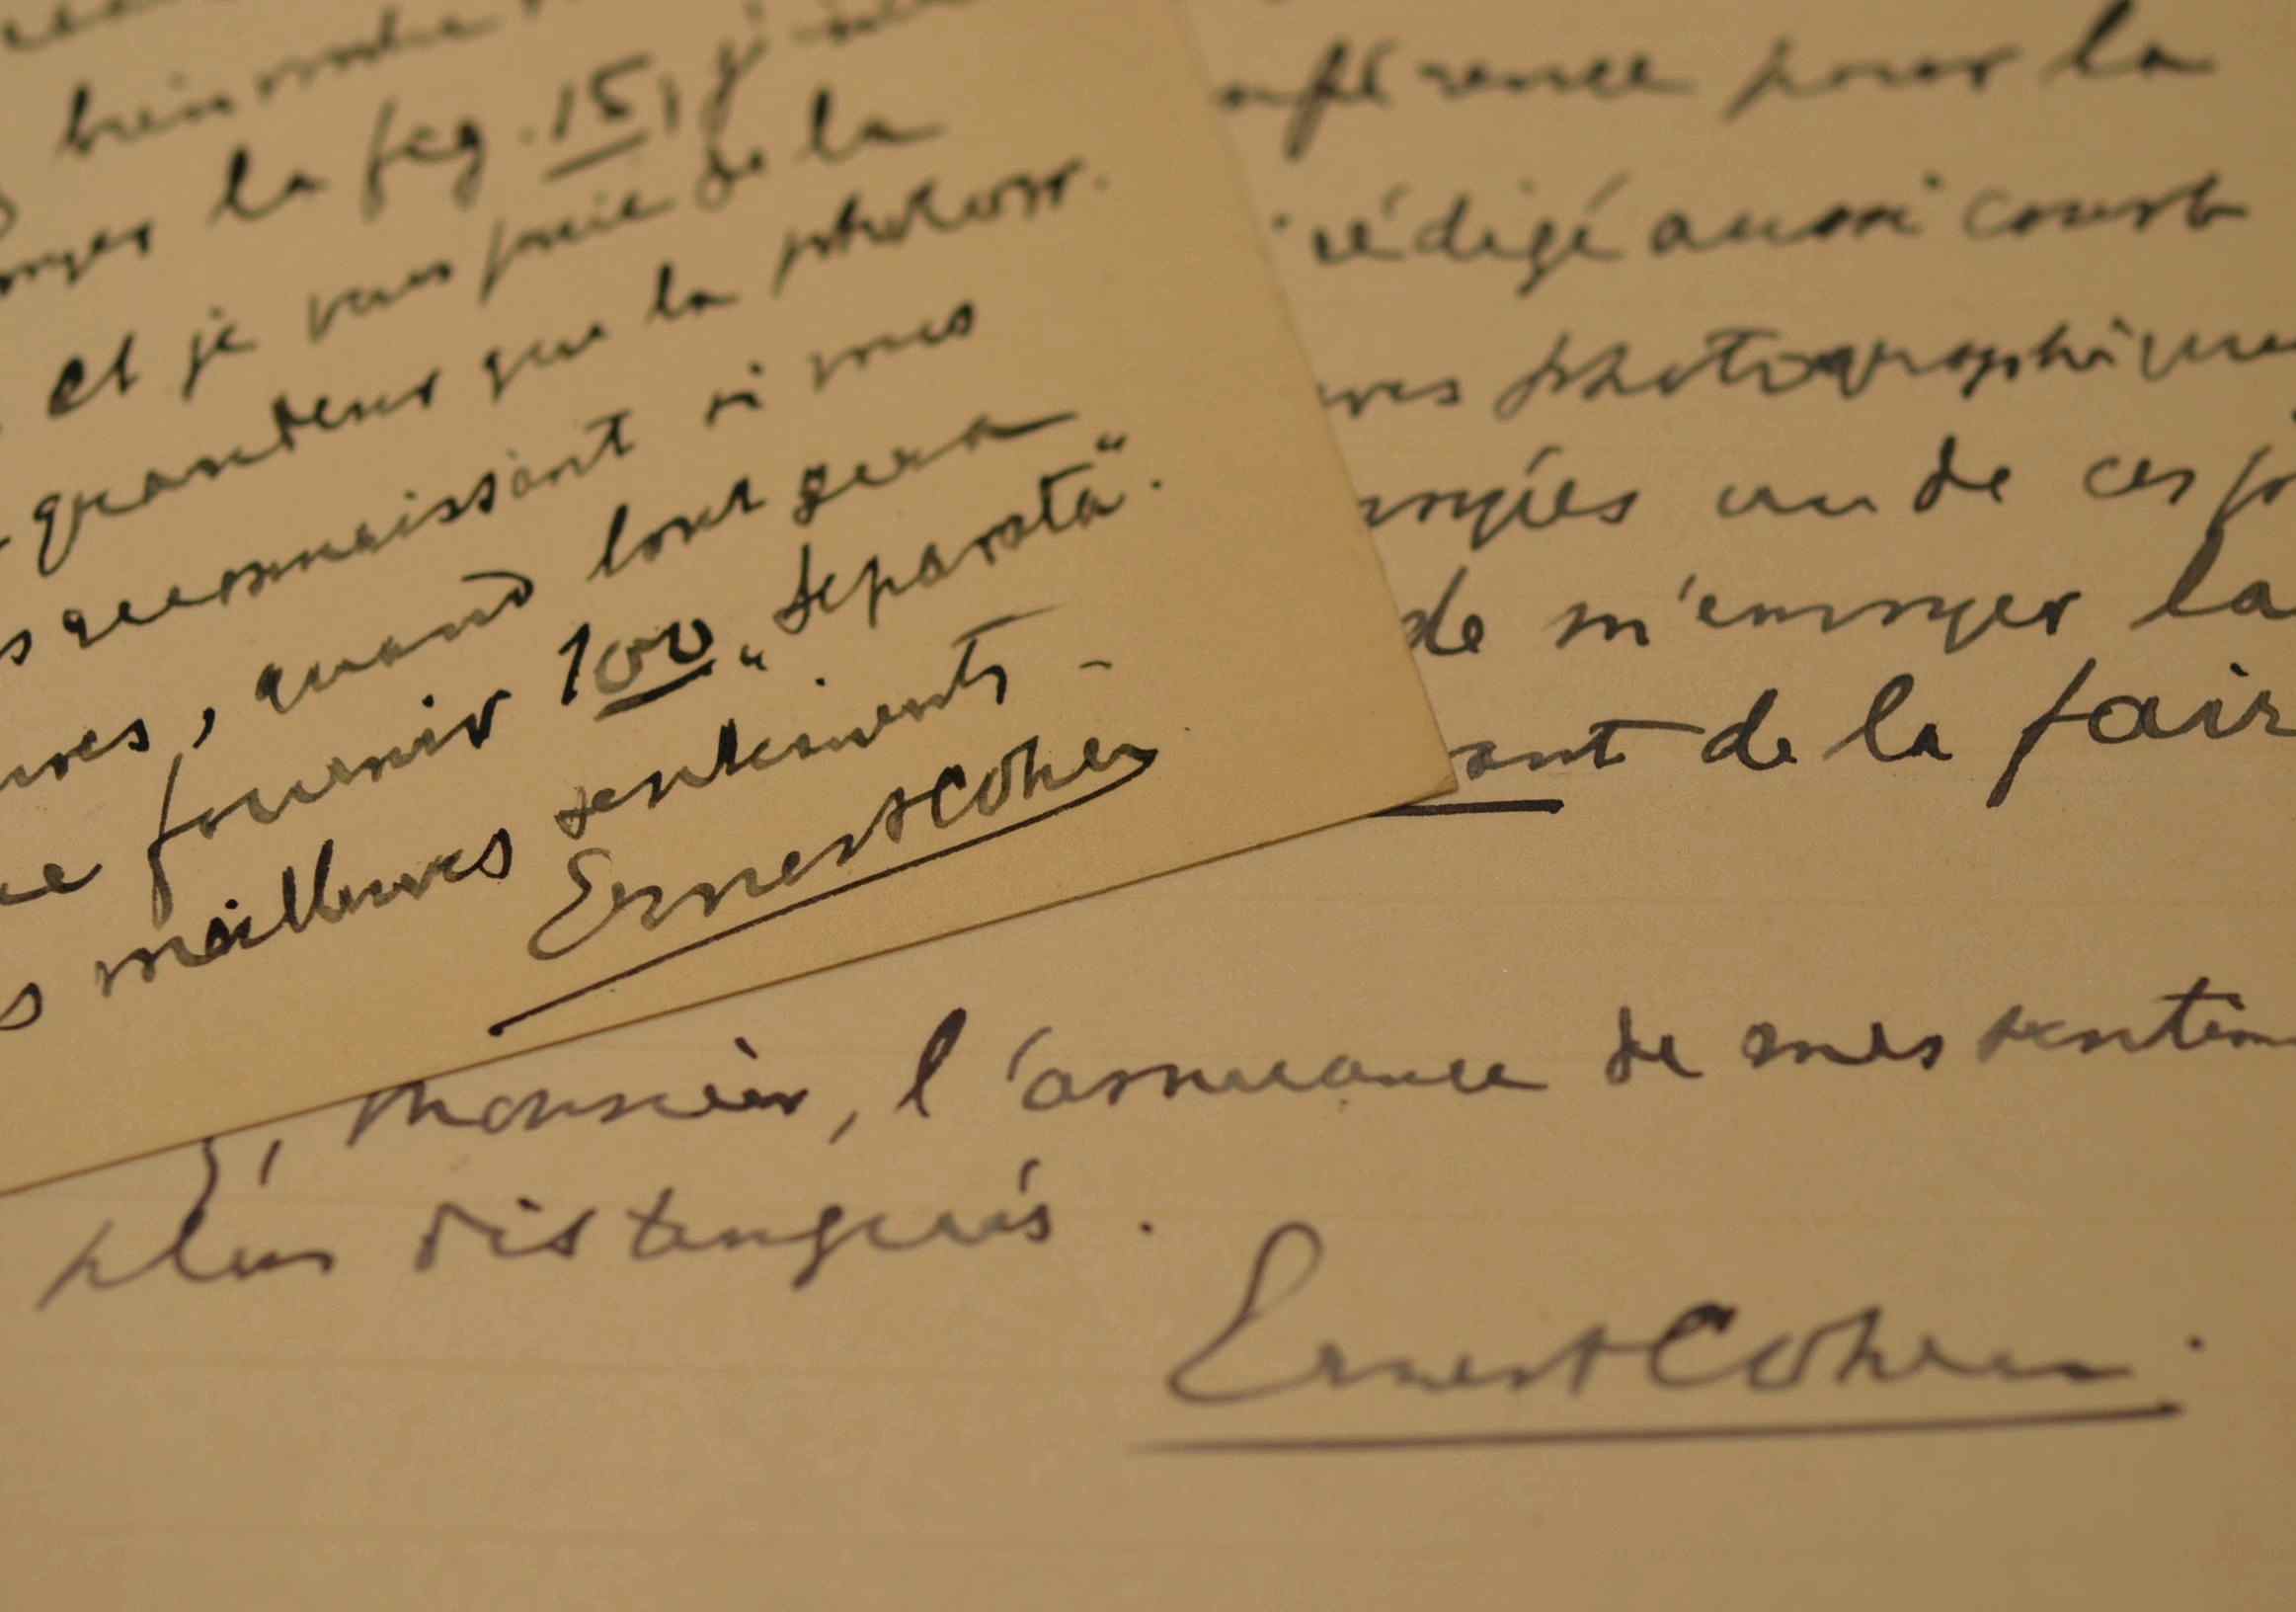 la feg. 15, j'
et je vous prie de la
grandeur que la photogr.
reconnaissant si vous
, quand tout sera
fournir 100 „separata“.
meilleures sentiments -
Ernst Cohen
pour la
rédigé aussi court
photographiques
un de ces
de m'envoyer la
ant de la fair
, Monsieur, l'assurance de mes sentim
plus distingués.
Ernst Cohen.